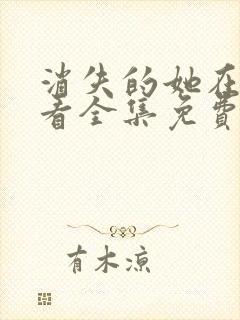 消失的她在
看全集免費
有木凉